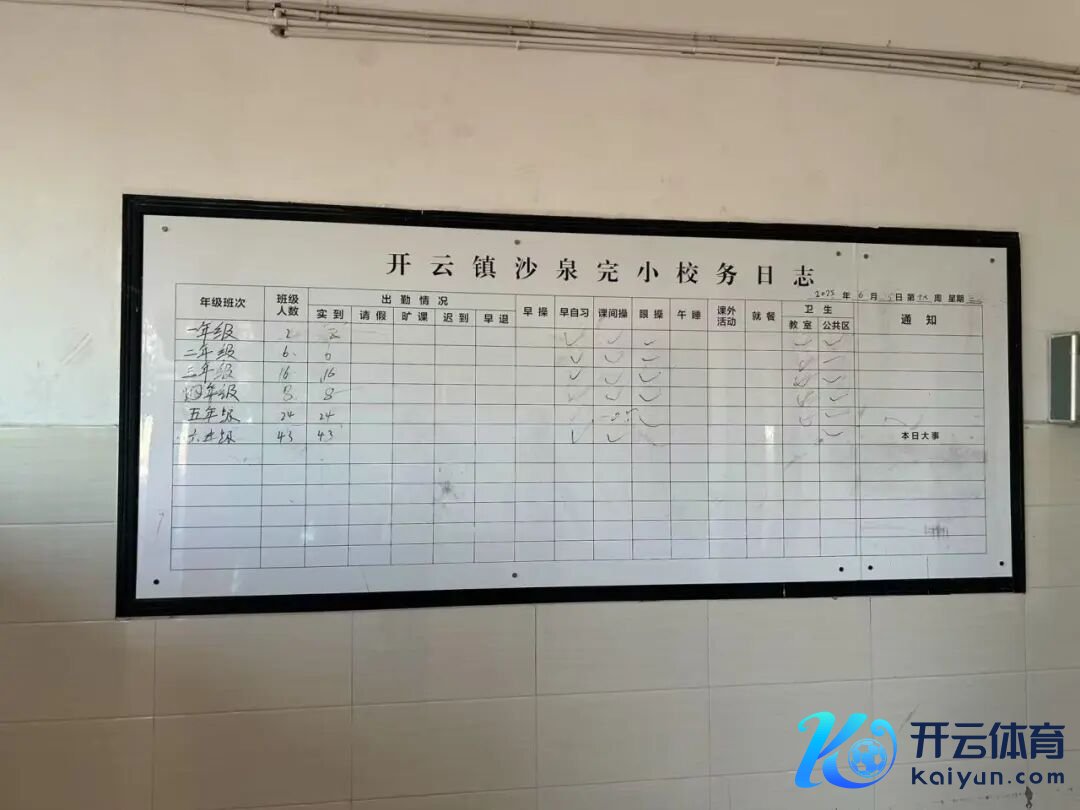 开云镇沙泉完小校务日志
2025年6月5日第 周 星期三
年级班次 班级人数 出勤情况 早操 早自习 课间操 眼操 午睡 课外活动 就餐 卫生 通知
实到 请假 旷课 迟到 早退 教室 公共区
一年级 2 2
二年级 6
三年级 16 16
四年级 8 8
五年级 24 24
六年级 43 43
本日大事
开云体育
kaiyun.com